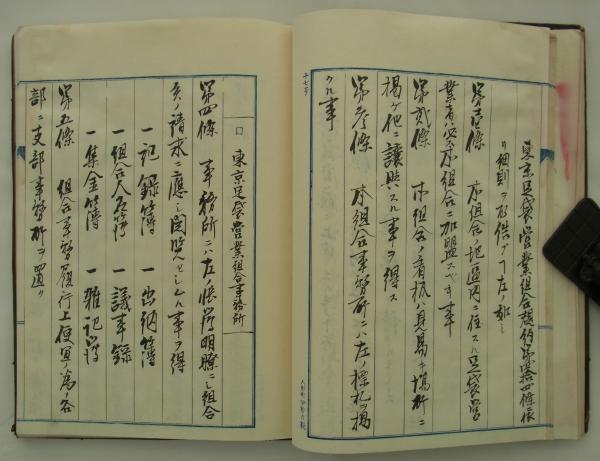 東京足袋営業組合規約第拾四條ニ依
リ細則ヲ設クル左ノ如シ
第壱條 本組合ノ地區内ニ住スル足袋営
業者ハ必ス本組合ニ加盟スベキ事
第弐條 本組合ノ看板ハ見易キ場所ニ
掲ケ他ニ讓與スル事ヲ得ス
第参條 本組合事務所ニハ左ノ標札ヲ掲
クル事
十七号
東京足袋営業組合事務所
第四條 事務所ニハ左ノ帳簿明瞭ニシ組合
員ノ請求ニ應シ閲覧セシムル事ヲ得
一記録簿 一出納簿
一組合人名簿 一議事録
一集金簿 一雑記簿
第五條 組合事務履行上便宜ノ為メ各
部ニ支部事務所ヲ置ク